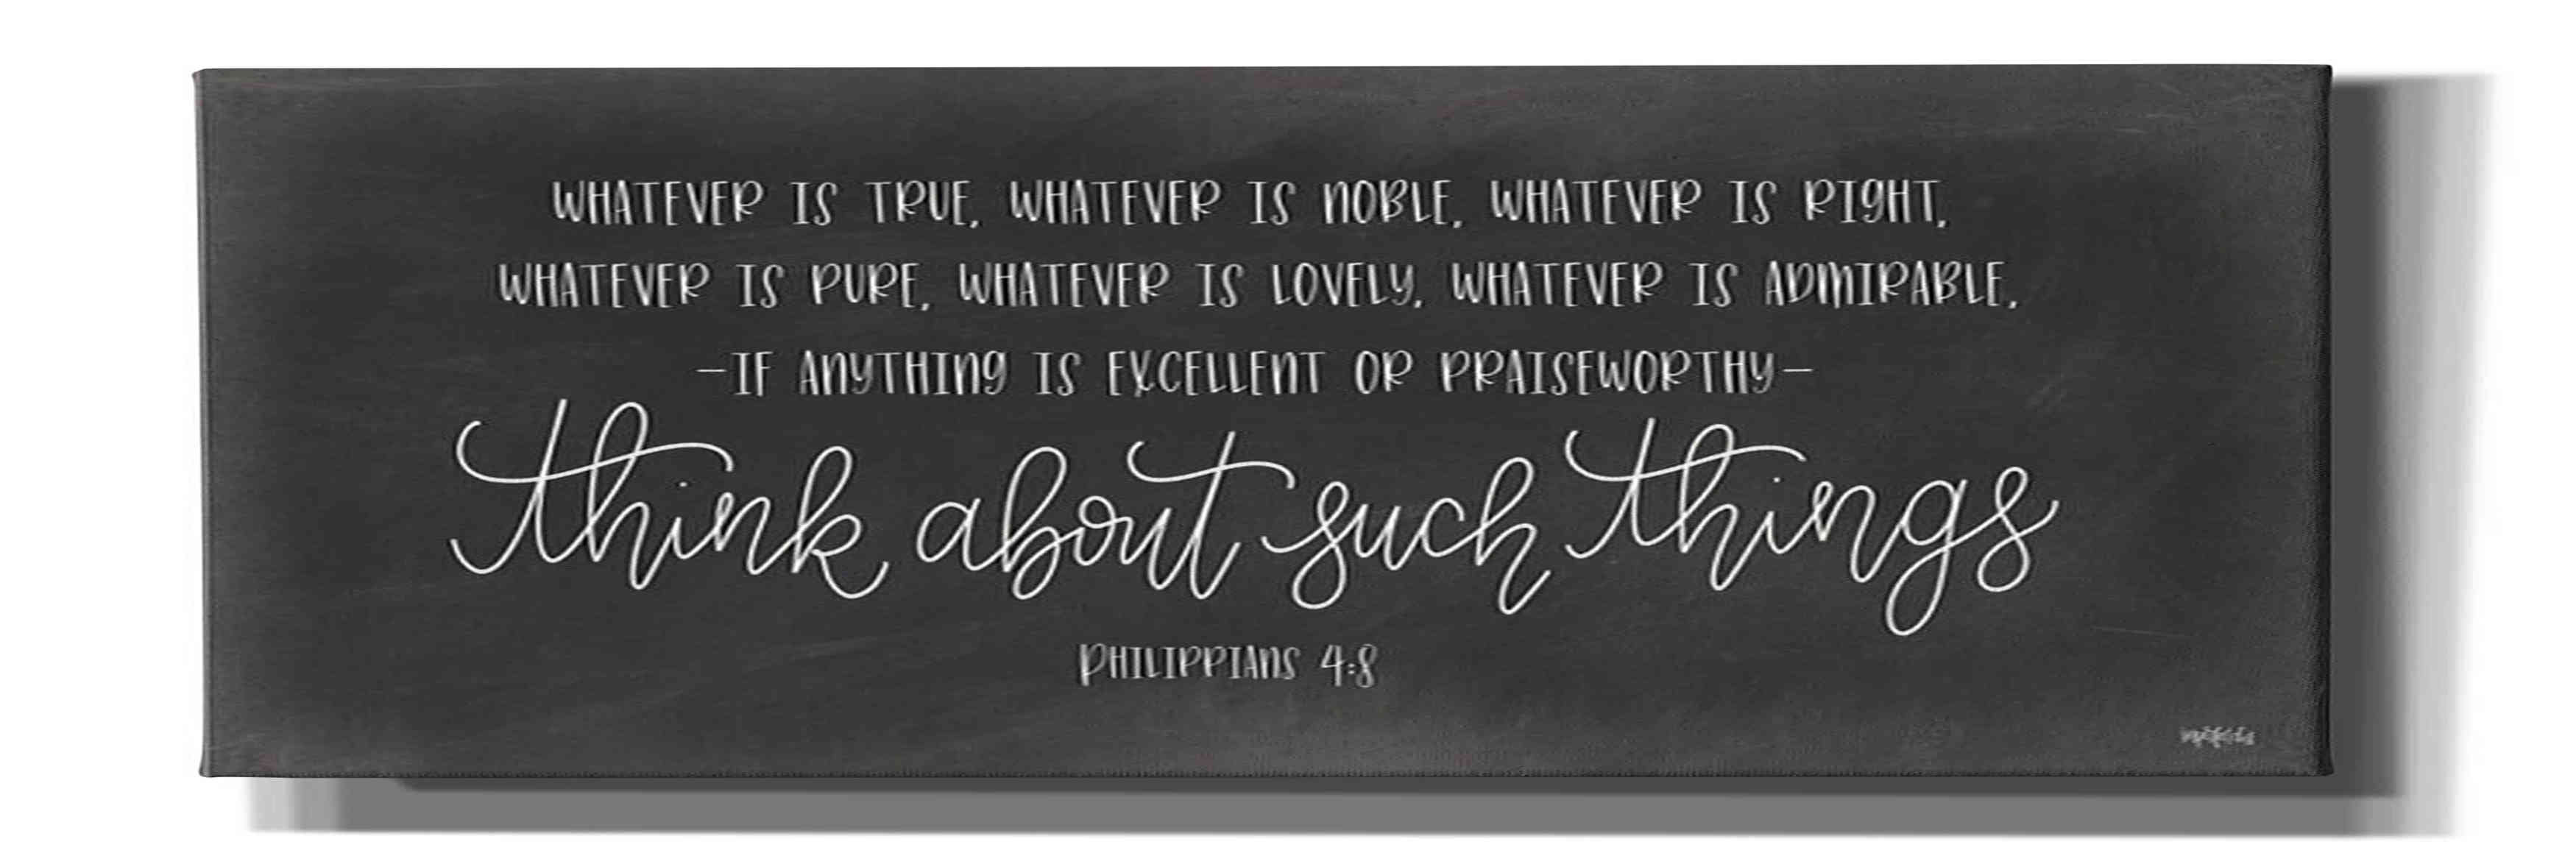 WHATEVER IS TRUE, WHATEVER IS NOBLE, WHATEVER IS RIGHT,
WHATEVER IS PURE, WHATEVER IS LOVELY, WHATEVER IS ADMIRABLE,
—IF ANYTHING IS EXCELLENT OR PRAISEWORTHY—
think about such things
PHILIPPIANS 4:8